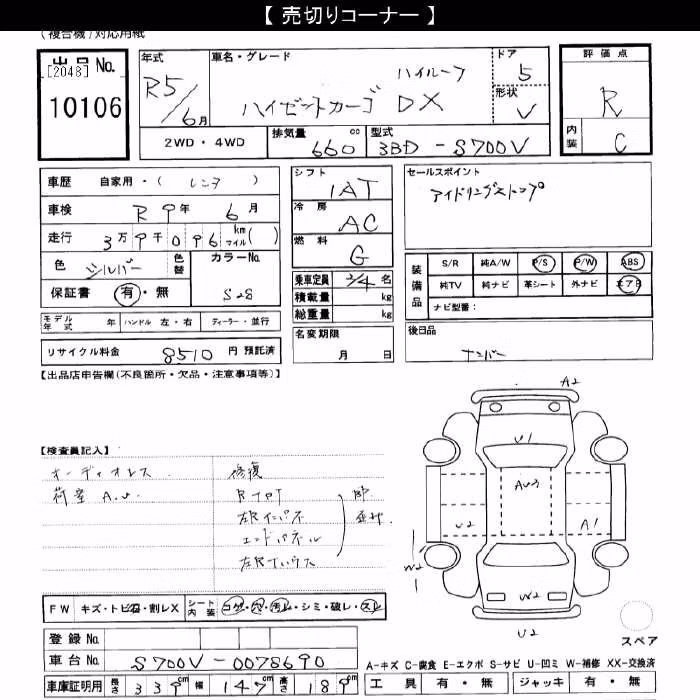 【 売切りコーナー 】
(複合機)対応用紙
出品 No.
[2048]
10106
年式
R5/6月
車名・グレード
ハイルーフ
ハイゼットカーゴ DX
ドア
5
形状
V
評価点
R
内装
C
2WD・4WD
排気量 660 cc
型式 3BD-S700V
車歴 自家用・( レンタ )
車検 R 9年 6月
走行 3万9千096 km マイル( )
色 シルバー
色替
カラーNo. S28
保証書 有・無
シフト
IAT
冷房
AC
燃料
G
乗車定員 2/4 名
積載量 kg
総重量 kg
名変期限
月 日
セールスポイント
アイドリングストップ
装備品
S/R 純A/W P/S P/W ABS
純TV 純ナビ 革シート 外ナビ エアB
ナビ型番:
後日品
ナンバー
モデル年式 年 ハンドル 左・右 ディーラー・並行
リサイクル料金 8510 円 預託済
【出品店申告欄(不良箇所・欠品・注意事項等)】
【検査員記入】
オーディオレス
荷室 A.U
修復
エンドパネル
A2
U1
AU3
U2
A1
W2
W2
U2
スペア
FW キズ・トビ石・割レX
シート内装 コゲ・穴・汚レ・シミ・破レ・スレ
登録 No.
車台 No. S700V-0078690
車庫証明用 長さ 339cm 幅 147cm 高さ 189cm
A-キズ C-腐食 E-エクボ S-サビ U-凹ミ W-補修 XX-交換済
工具 有・無 ジャッキ 有・無